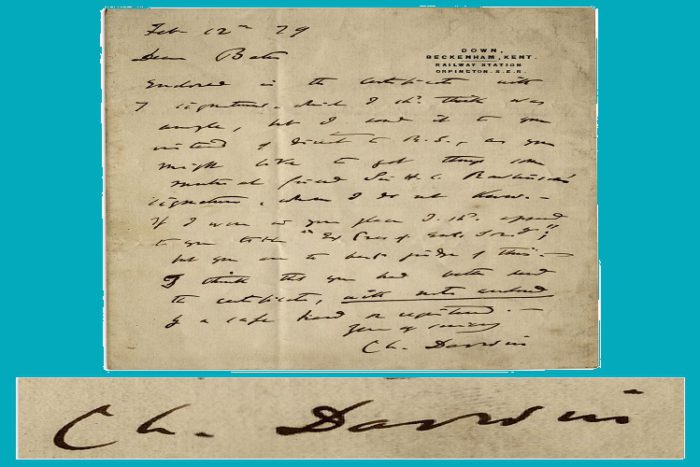 Feb 12th 79
DOWN,
BECKENHAM, KENT.
RAILWAY STATION
ORPINGTON. S.E.R.
Dear Bates
Enclosed is the certificate with
7 signatures, which I shd. think was
ample, but I send it to you
instead of direct to R.S., as you
might like to get some
mutual friend Sir H.C. Rawlinson's
signature, whom I do not know.—
If I were in your place I shd. append
to your title "Ex Pres of Ent.
but you are the best judge of this.—
I think that you had better send
the certificate, with note enclosed
by a safe hand or registered.—
Yours sincerely
Ch. Darwin
Ch. Darwin